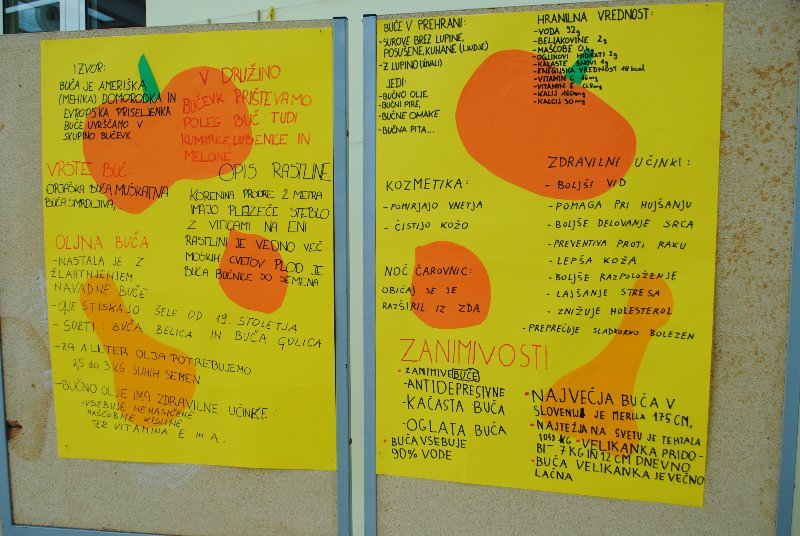 IZVOR:
BUČA JE AMERIŠKA
(MEHIKA) DOMORODKA IN
EVROPSKA PRISELJENKA
BUČE UVRŠČAMO V
SKUPINO BUČEVK.
V DRUŽINO
BUČEVK PRIŠTEVAMO
POLEG BUČ TUDI
KUMARICE, LUBENICE IN
MELONE.
VRSTE BUČ:
ORJAŠKA BUČA, MUŠKATNA
BUČA SMRDLJIVA,..
OPIS RASTLINE
KORENINA PRODRE 2 METRA
IMAJO PLEZEČE STEBLO
Z VITICAMI NA ENI
RASTLINI JE VEDNO VEČ
MOŠKIH CVETOV PLOD JE
BUČA BUČNICE SO SEMENA
OLJNA BUČA
- NASTALA JE Z
ŽLAHTNJENJEM
NAVADNE BUČE
- OLJE STISKAJO ŠELE OD 19. STOLETJA
- SORTI: BUČA BELICA IN BUČA GOLICA
- ZA 1 LITER OLJA POTREBUJEMO
2,5 do 3 KG SUHIH SEMEN
- BUČNO OLJE IMA ZDRAVILNE UČINKE:
- VSEBUJE NENASIČENE
MAŠČOBNE KISLINE
TER VITAMINA E IN A.
BUČE V PREHRANI:
- SUROVE BREZ LUPINE,
POSUŠENE, KUHANE (LJUDJE)
- Z LUPINO (ŽIVALI)
JEDI:
- BUČNO OLJE,
- BUČNI PIRE,
- BUČNE OMAKE
- BUČNA PITA...
HRANILNA VREDNOST:
- VODA 92g
- BELJAKOVINE 2g
- MAŠČOBE
- OGLJIKOVI HIDRATI 2g
- KALASTE SNOVI 1g
- ENERGIJSKA VREDNOST 18 kcal
- VITAMIN C 16mg
- VITAMIN E
- KALIJ 160mg
- KALCIJ 30mg
KOZMETIKA:
- POMIRJAJO VNETJA
- ČISTIJO KOŽO
ZDRAVILNI UČINKI:
- BOLJŠI VID
- POMAGA PRI HUJŠANJU
- BOLJŠE DELOVANJE SRCA
- PREVENTIVA PROTI RAKU
- LEPŠA KOŽA
- BOLJŠE RAZPOLOŽENJE
- LAJŠANJE STRESA
- ZNIŽUJE HOLESTEROL
- PREPREČUJE SLADKORNO BOLEZEN
NOČ ČAROVNIC:
OBIČAJ SE JE
RAZŠIRIL IZ ZDA
ZANIMIVOSTI
• ZANIMIVE BUČE
- ANTIDEPRESIVNE
- KAČASTA BUČA
- OGLATA BUČA
• BUČA VSEBUJE
90% VODE
• NAJVEČJA BUČA V
SLOVENIJI JE MERILA 175 CM,
- NAJTEŽJA NA SVETU JE TEHTALA
KG - VELIKANKA PRIDO-
BI - 7 KG IN 12 CM DNEVNO
- BUČA VELIKANKA JE VEČNO
LAČNA